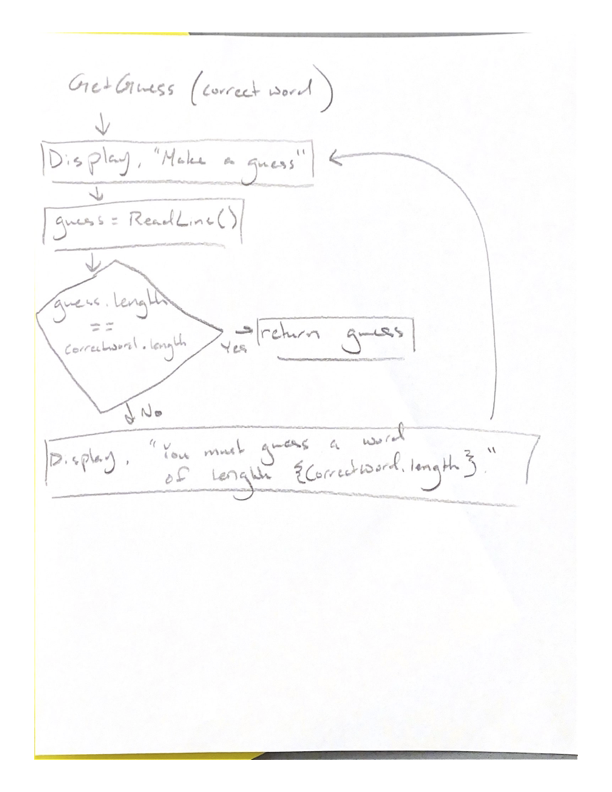 GetGuess (correct word)
Display, "Make a guess"
guess = ReadLine()
guess.length
==
correctword.length
Yes
return guess
No
Display, "You must guess a word
of length {Correctword.length}."